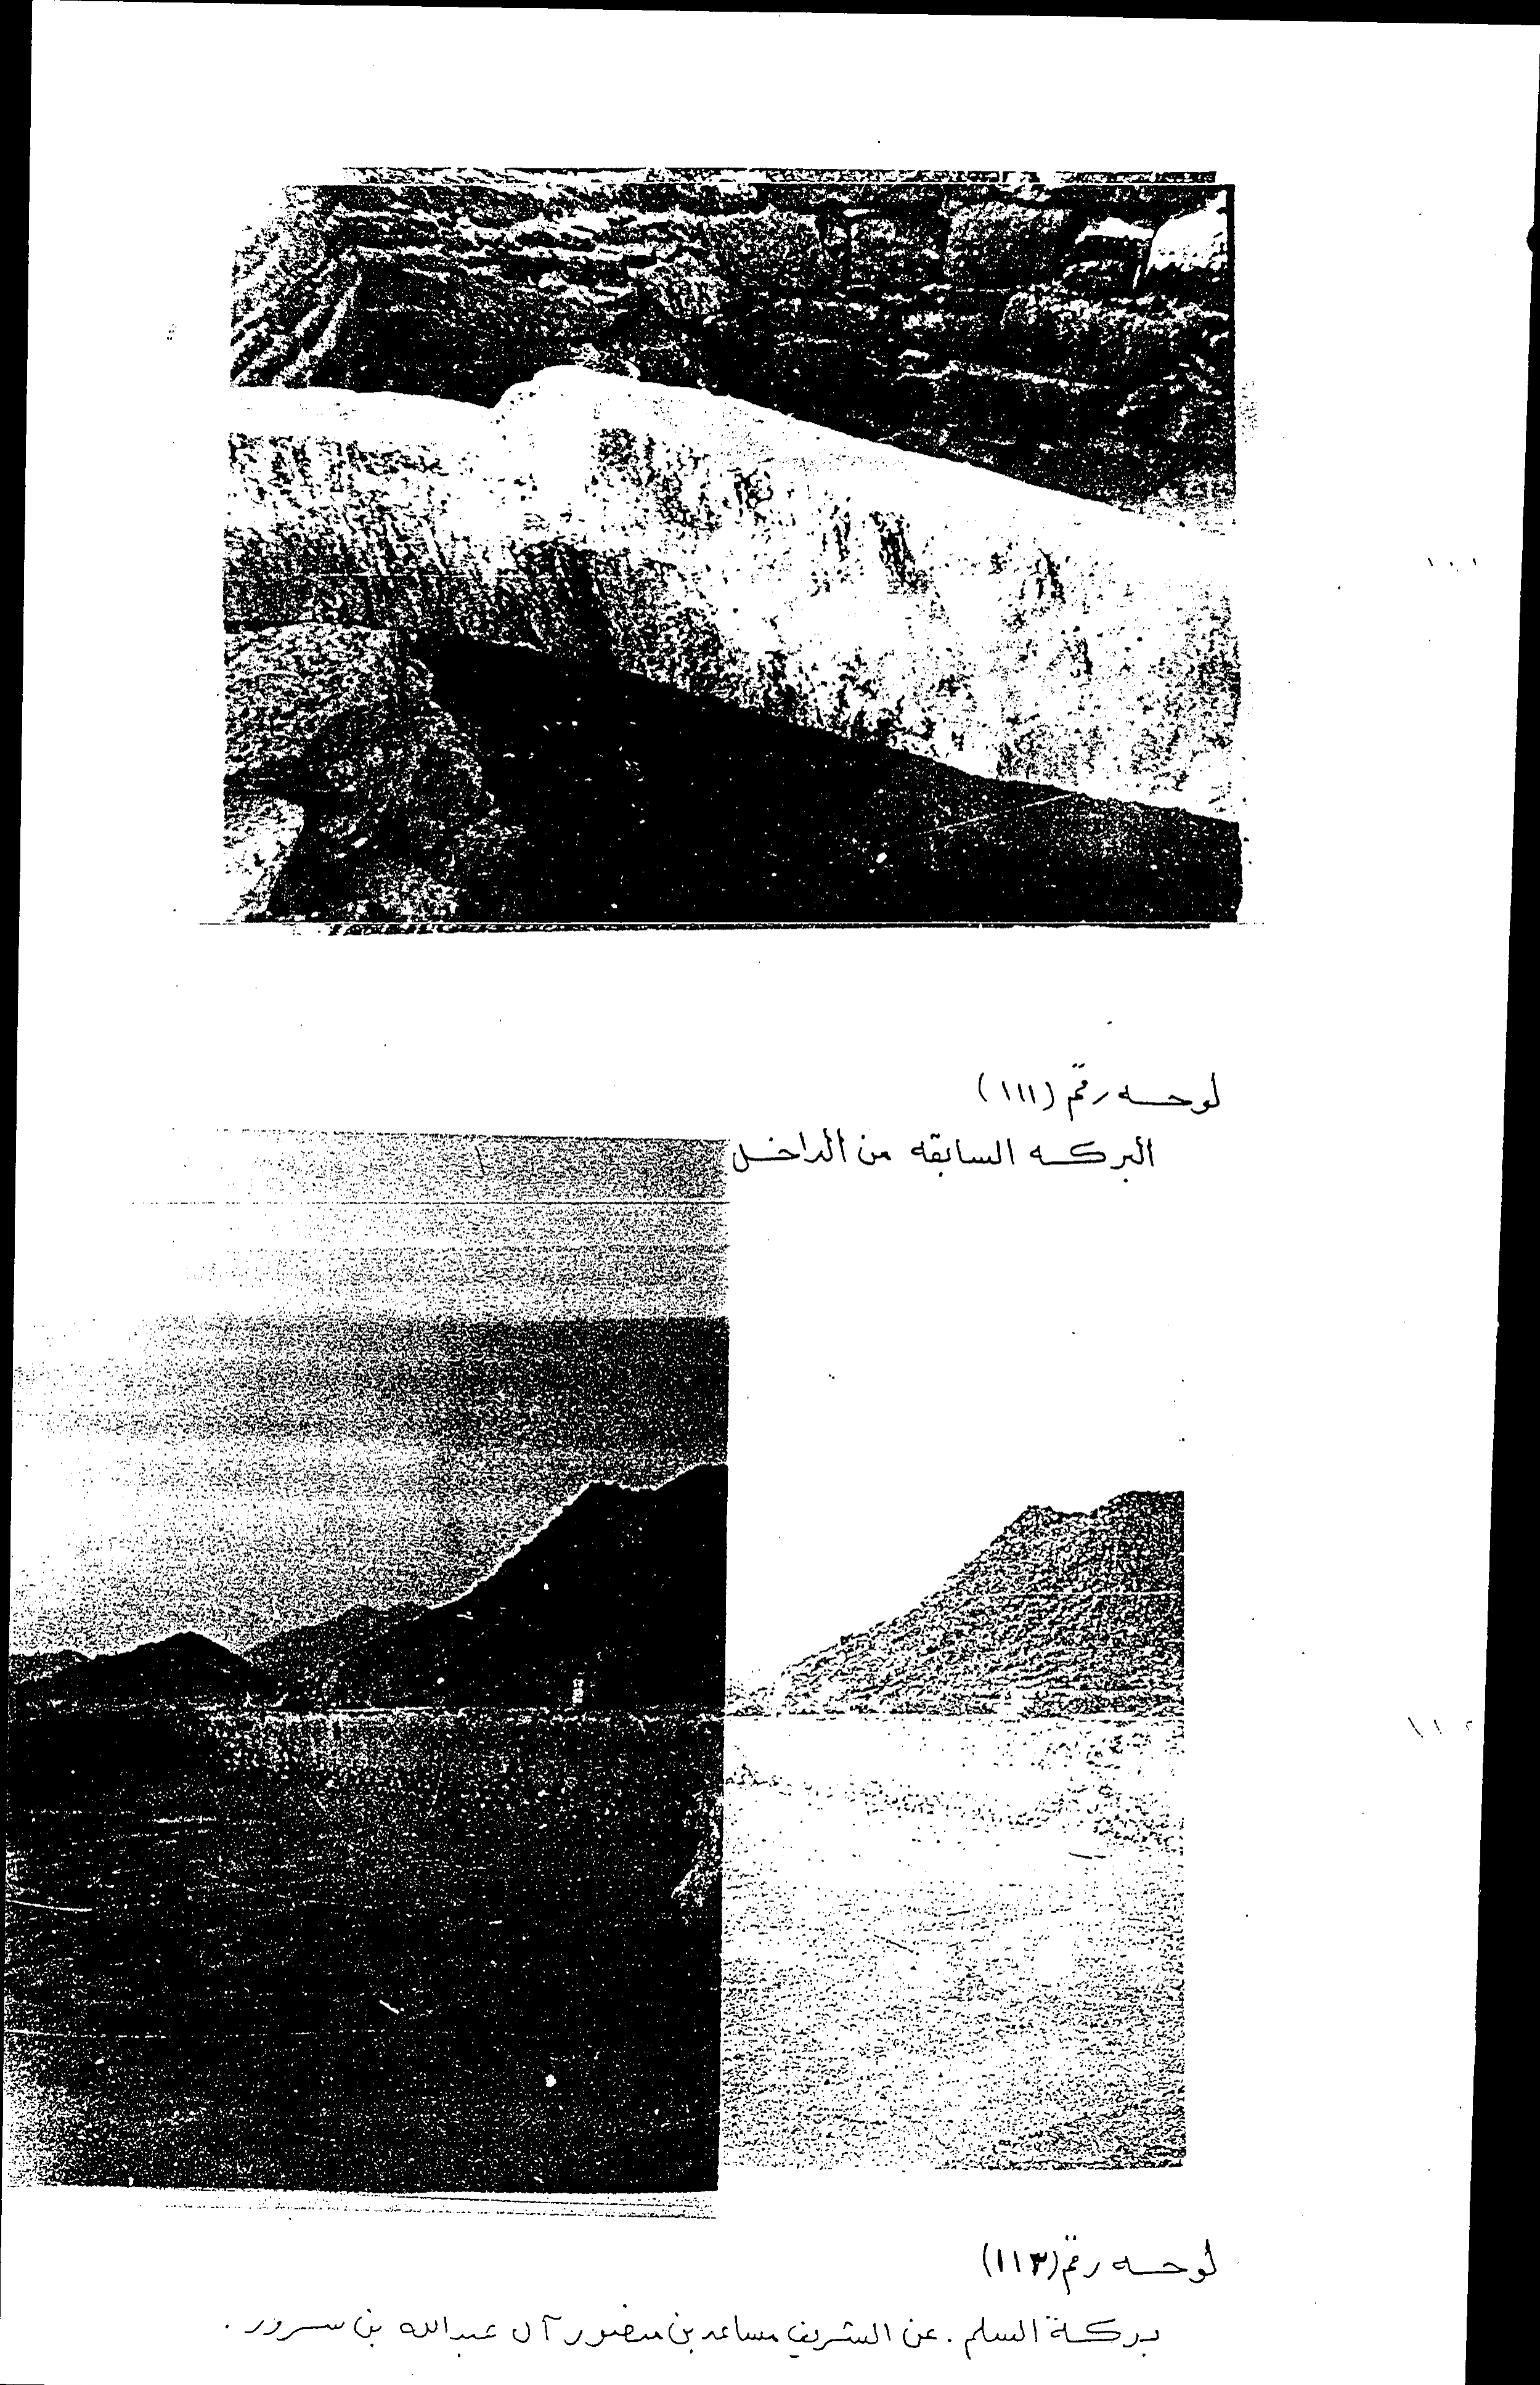 لوحه رقم (١١١)
البركه السابقه من الداخل
لوحه رقم (١١٣)
بركة السلم . عن الشريف مساعد بن منصور آل عبدالله بن سرور .